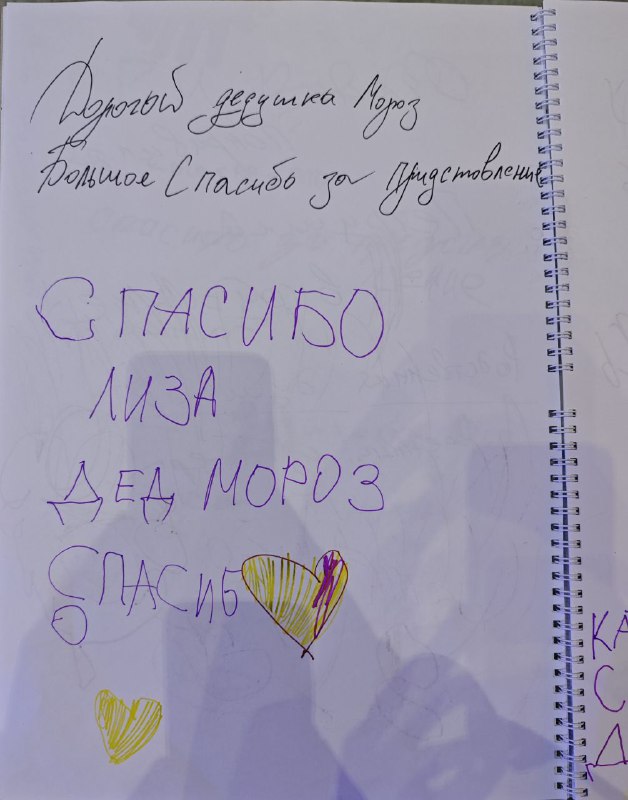 Дорогый дедушка Мороз
Большое Спасибо за придстовление
СПАСИБО
ЛИЗА
ДЕД МОРОЗ
СПАСИБ
О
КА
С
Д